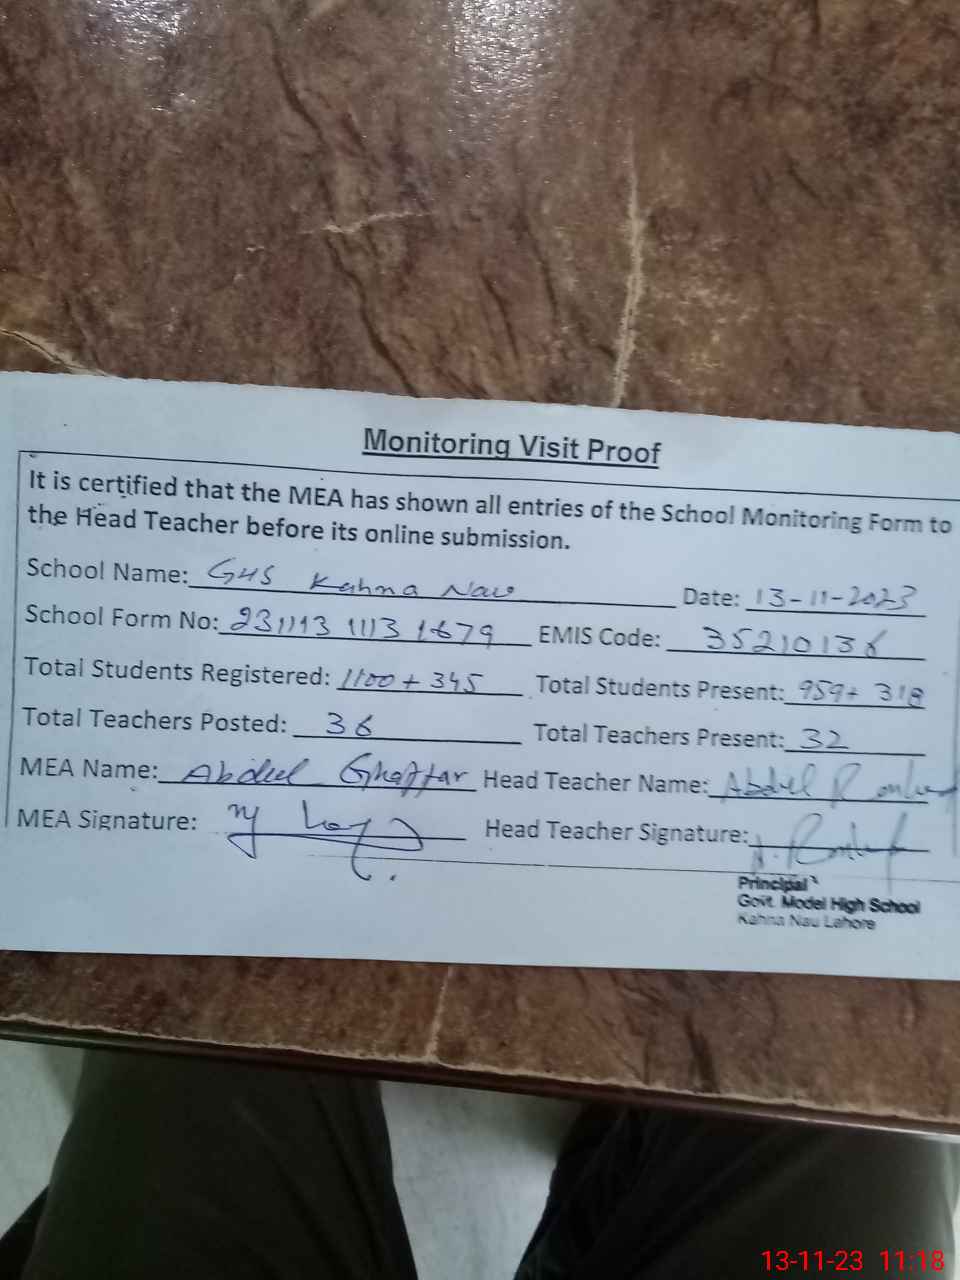 Monitoring Visit Proof
It is certified that the MEA has shown all entries of the School Monitoring Form to
the Head Teacher before its online submission.
School Name: GHS Kahna Nau Date: 13-11-2023
School Form No: 231113 1113 1679 EMIS Code: 35210136
Total Students Registered: 1100 + 345 Total Students Present: 959+ 318
Total Teachers Posted: 36 Total Teachers Present: 32
MEA Name: Abdul Ghaffar Head Teacher Name: Abdul
MEA Signature: Head Teacher Signature:
Principal
Govt. Model High School
Kahna Nau Lahore
13-11-23 11:18